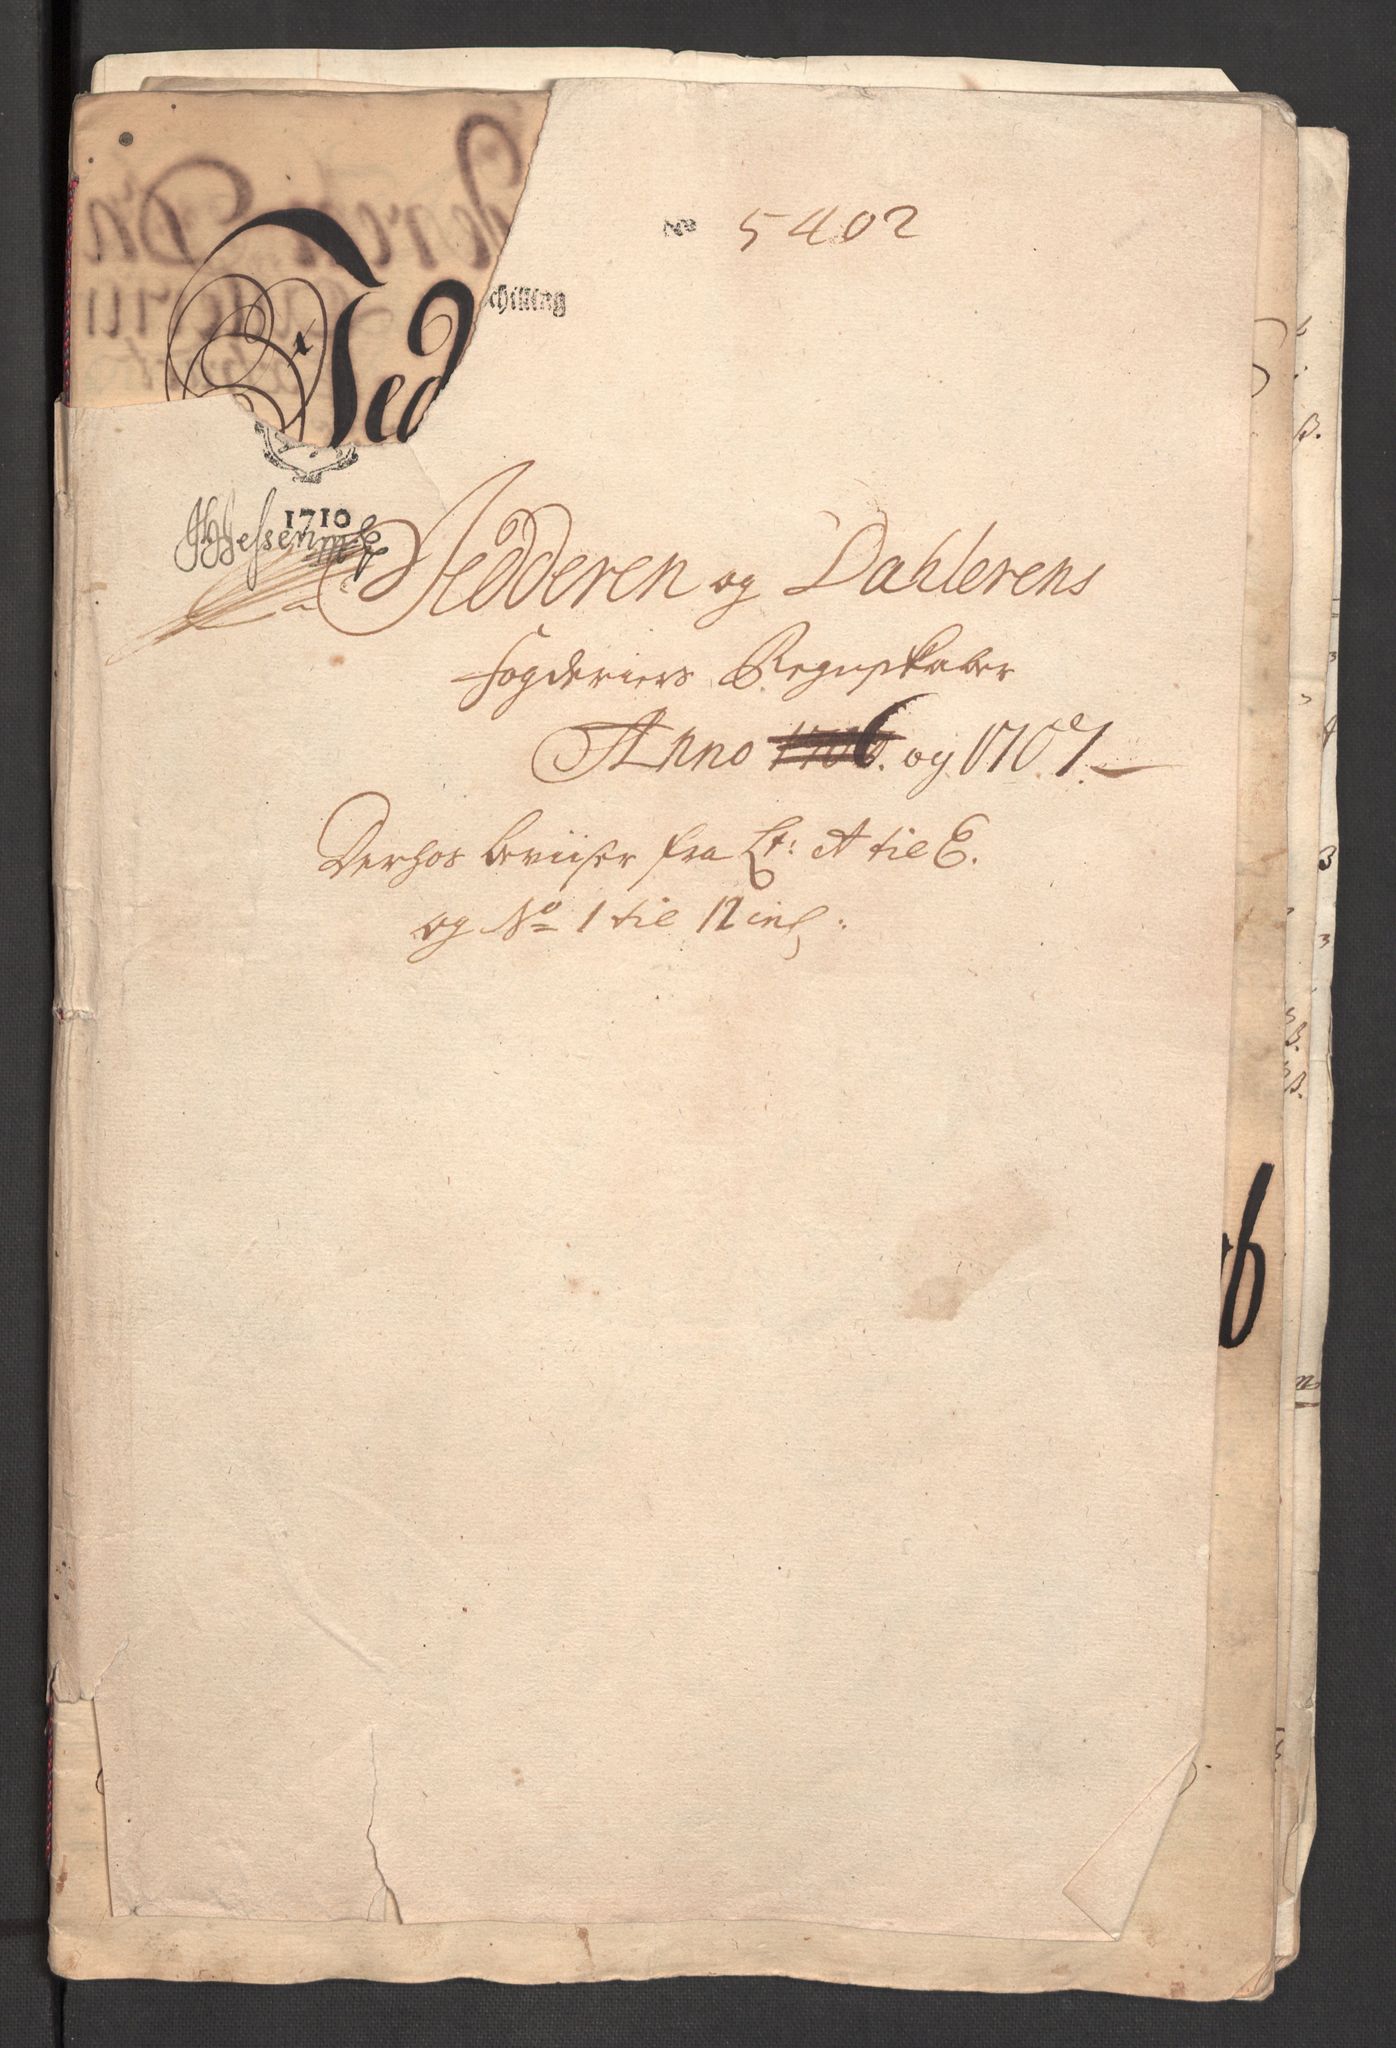 No 5402
chilling
Jed
1710
Jedderen og Dahlerens
fogderiers Regnskaber
Anno 1706. og 1707.
Derhos beviiser fra Lt: A til E.
og No 1 til 12 incl: